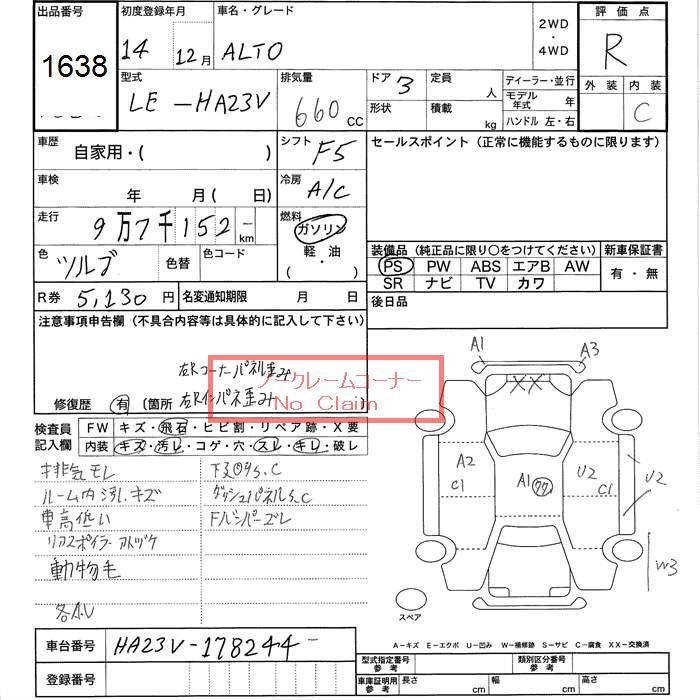 出品番号 初度登録年月 車名・グレード 2WD・4WD 評価点
1638 14 12月 ALTO R
型式 排気量 ドア 3 定員 人 ディーラー・並行 外装 内装
LE-HA23V 660 CC 形状 積載 kg モデル年式 年 C
ハンドル 左・右
車歴 自家用・( ) シフト F5 セールスポイント (正常に機能するものに限ります)
車検 年 月 ( 日) 冷房 A/C
走行 9万7千152 km 燃料 ガソリン
軽・油
( ・ )
色 ツルブ 色替 色コード
装備品 (純正品に限り○をつけてください) 新車保証書
PS PW ABS エアB AW 有・無
SR ナビ TV カワ
R券 5,130円 名変通知期限 月 日 後日品
注意事項申告欄 (不具合内容等は具体的に記入して下さい)
左Rコーナーパネル歪み
ノークレームコーナー
No Claim
修復歴 有 (箇所 左Rインパネ歪み
検査員記入欄 FW キズ・飛石・ヒビ割・リペア跡・X要
内装 キズ・汚レ・コゲ・穴・スレ・キレ・破レ
排気モレ
ルーム内汚レキズ ダッシュパネルS.C
車高低い Fバンパーズレ
リアスポイラーアトヅケ
動物毛
A1 A3
XX
A2 C1 A1 77 U2 C1 U2
W3
スペア
A-キズ E-エクボ U-凹み W-補修跡 S-サビ C-腐食 XX-交換済
車台番号 HA23V-178244-
登録番号
型式指定番号 参考 類別区分番号 参考
車庫証明用 参考 長さ cm 幅 cm 高さ cm